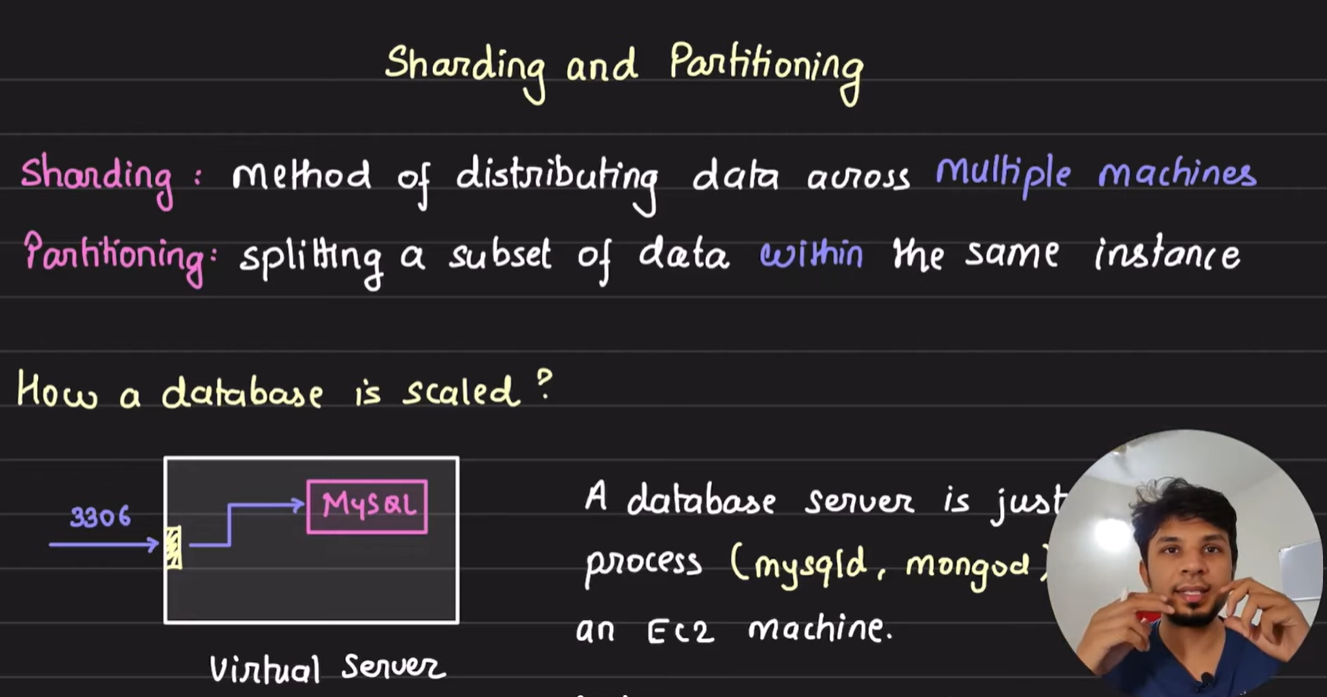 Sharding and Partitioning
Sharding : method of distributing data across multiple machines
Partitioning: splitting a subset of data within the same instance
How a database is scaled?
3306
MySQL
Virtual Server
A database server is just
process (mysqld, mongod)
an EC2 machine.